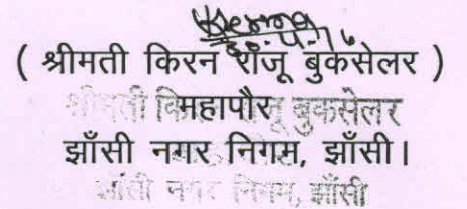 ( श्रीमती किरन राजू बुकसेलर )
श्रीमती किरन राजू बुकसेलर
महापौर
झाँसी नगर निगम, झाँसी।
झांसी नगर निगम, झाँसी